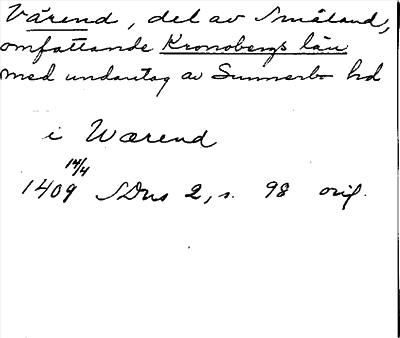 Värend, del av Småland,
omfattande Kronobergs län
med undantag av Sunnerbo hd
i Wærend
14/4
1409 SDns 2, s. 98 orig.